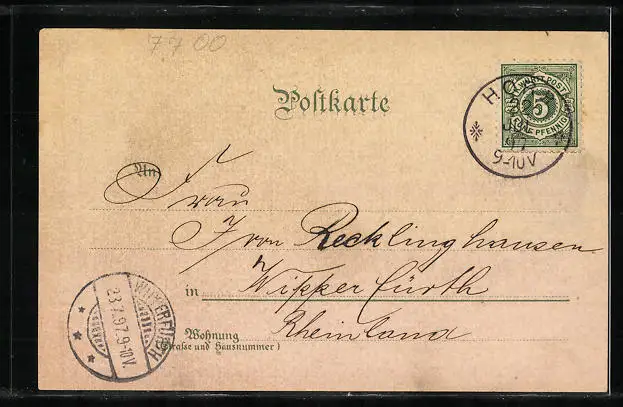 7700
Postkarte
WÜRTT. POST
5
FÜNF PFENNIG
9-10V
An
Frau
F von Recklinghausen
in Wipperfürth
Wohnung
Rheinland
(Straße und Hausnummer)
WIPPERFÜRTH
23.7.97.9-10V.